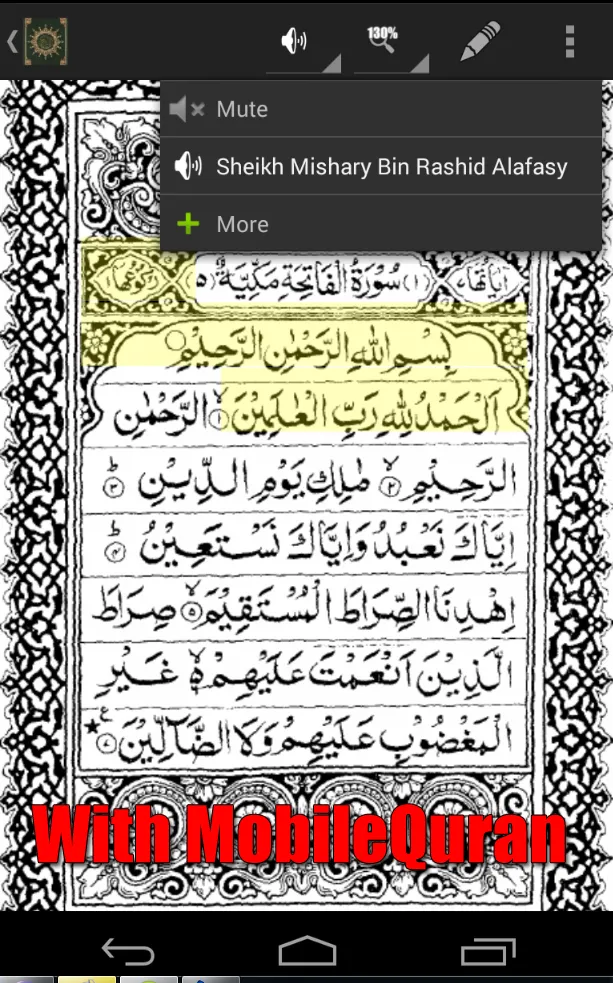 130%
Mute
Sheikh Mishary Bin Rashid Alafasy
More
اٰيَاتُهَا ٧ (١) سُوْرَةُ الْفَاتِحَةِ مَكِّيَّةٌ (٥) رُكُوْعُهَا ١
بِسْمِ اللّٰهِ الرَّحْمٰنِ الرَّحِيْمِ
اَلْحَمْدُ لِلّٰهِ رَبِّ الْعٰلَمِيْنَ ۙ﴿١﴾ الرَّحْمٰنِ
الرَّحِيْمِ ۙ﴿٢﴾ مٰلِكِ يَوْمِ الدِّيْنِ ؕ﴿٣﴾
اِيَّاكَ نَعْبُدُ وَاِيَّاكَ نَسْتَعِيْنُ ؕ﴿٤﴾
اِهْدِنَا الصِّرَاطَ الْمُسْتَقِيْمَ ۙ﴿٥﴾ صِرَاطَ
الَّذِيْنَ اَنْعَمْتَ عَلَيْهِمْ ۙ۬﴿٦﴾ غَيْرِ
الْمَغْضُوْبِ عَلَيْهِمْ وَلَا الضَّآلِّيْنَ ﴿٧﴾ ع ★
With MobileQuran